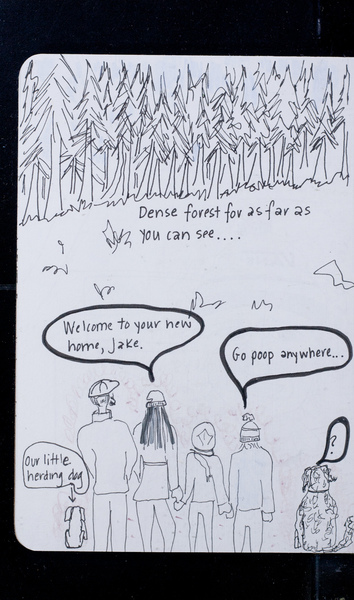 Dense forest for as far as
you can see....
Welcome to your new
home, Jake.
Go poop anywhere...
Our little
herding dog
?